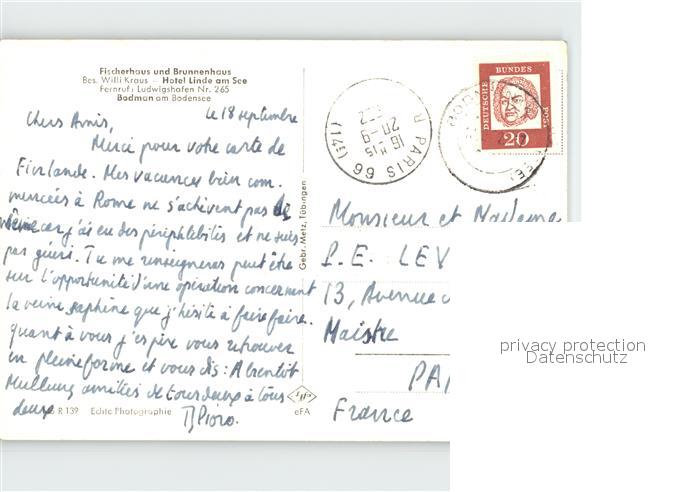 Fischerhaus und Brunnenhaus
Bes. Willi Kraus – Hotel Linde am See
Fernruf: Ludwigshafen Nr. 265
Bodman am Bodensee
le 18 septembre
Chers Amis,
Merci pour votre carte de
Finlande. Mes vacances bien com
mencées à Rome ne s'achèvent pas de
même car j'ai eu des périphlébites et ne suis
pas guéri. Tu me renseigneras peut être
sur l'opportunité d'une opération concernant
la veine saphène que j'hésite à faire faire.
quant à vous j'espère vous retrouver
en pleine forme et vous dis: A bientôt
amitiés de tous deux à tous
deux
R 139 Echte Photographie
eFA
Gebr. Metz, Tübingen
PARIS 66 (14e)
DEUTSCHE BUNDES POST
20
Monsieur et Madame
P. E. LEV
13, Avenue
Maistre
PA
France
privacy protection
Datenschutz